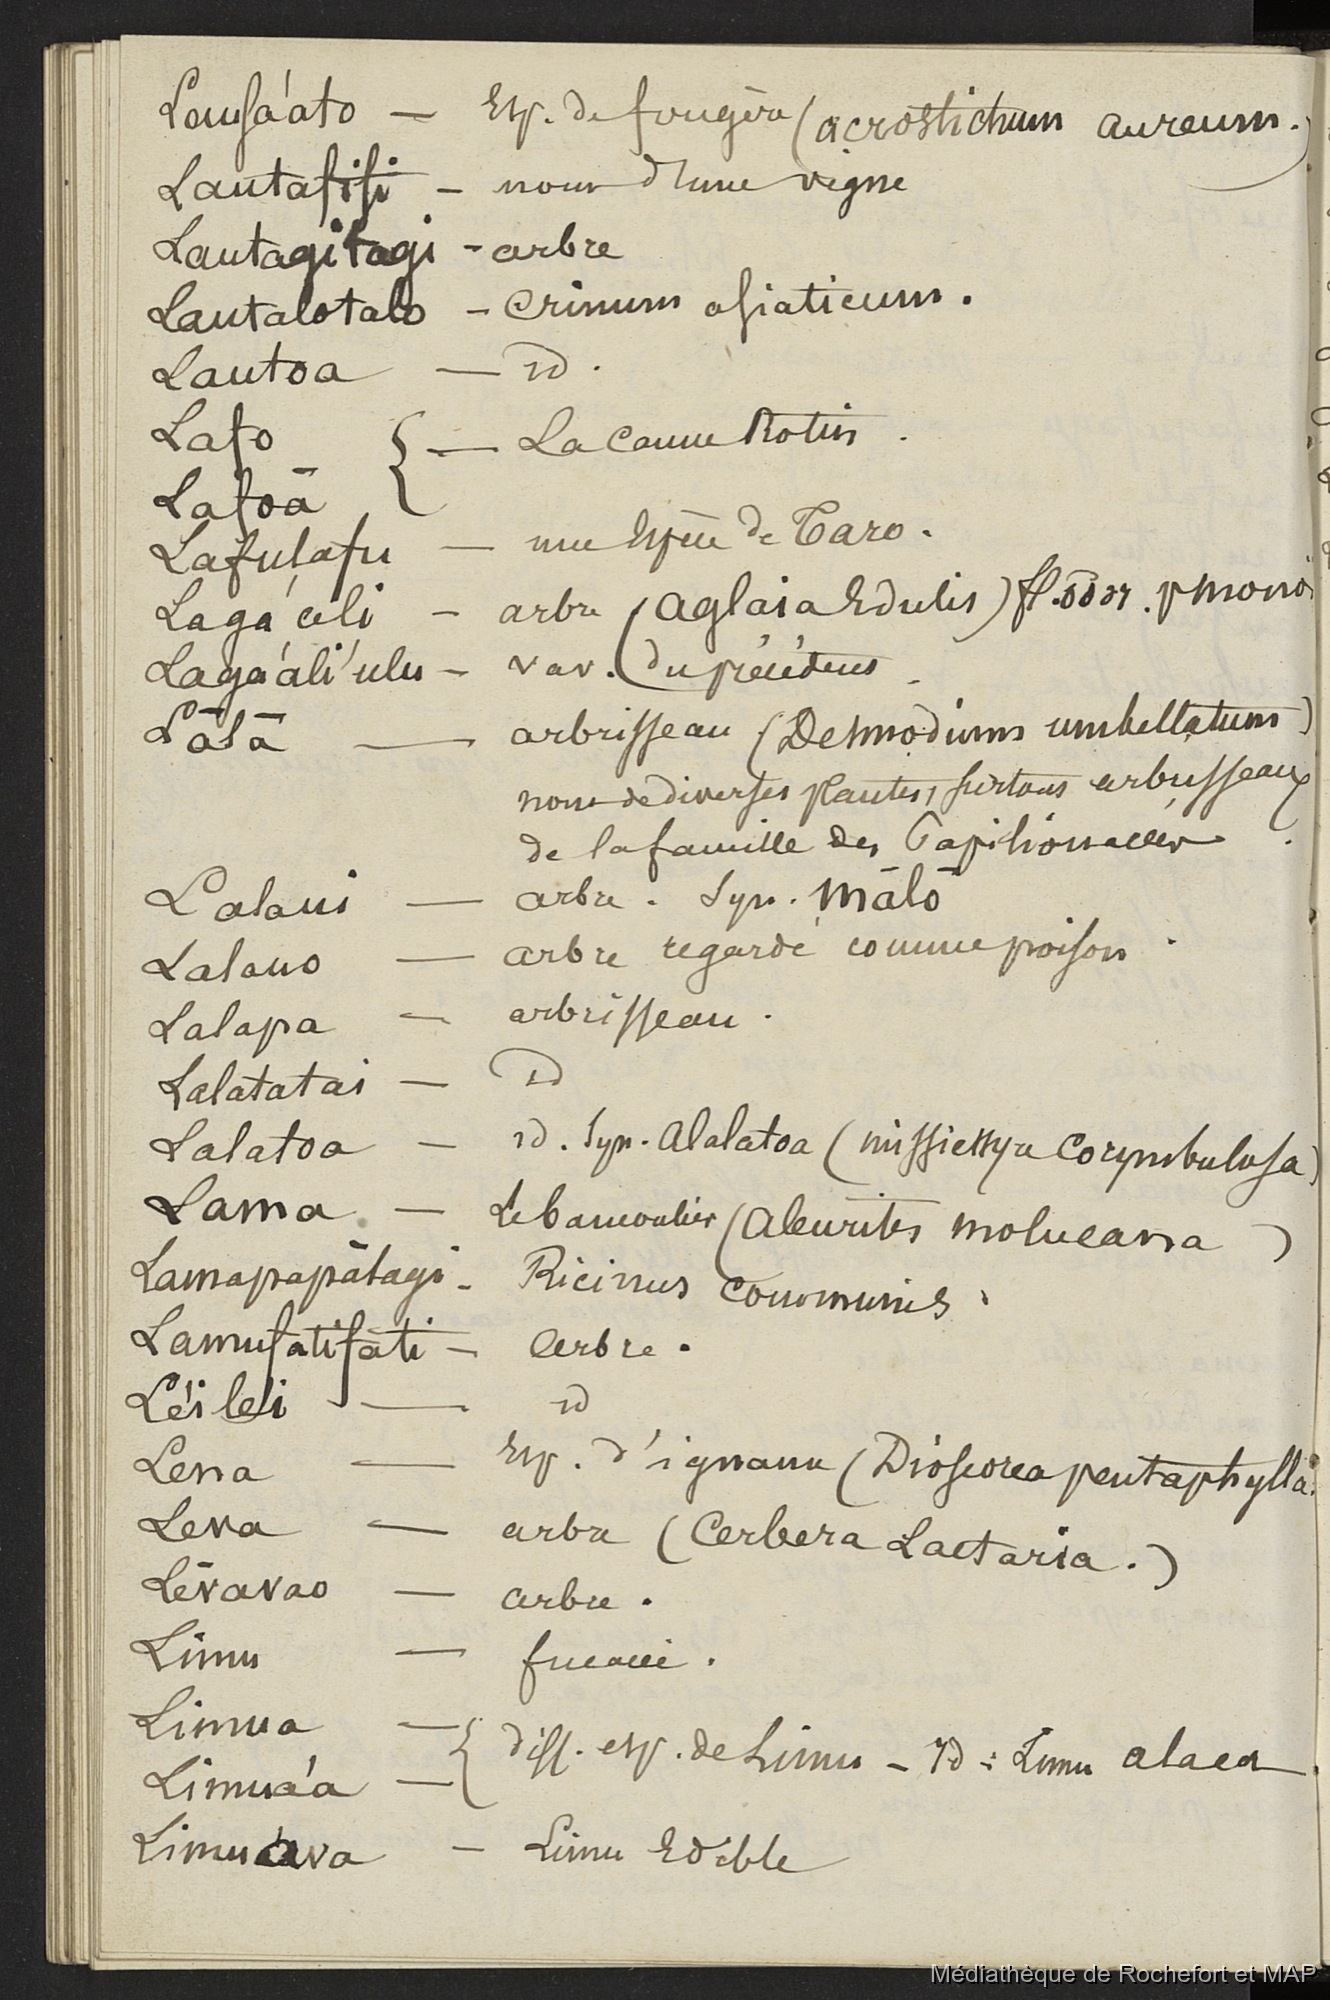 Lausa'ato — Esp. de fougère (acrostichum aureum.)
Lautafifi — nom d'une vigne
Lautagitagi - arbre
Lautalotalo - Crinum asiaticum.
Lautoa — id.
Lafo { — La Canne Rotin.
Lafoā
Lafulafu — une Espèce de Taro.
Laga'ali - arbre (aglaia Edulis) fl. odor.
Laga'ali'ulu - var. du précédent.
Lālā — arbrisseau (Desmodium umbellatum)
nom de diverses plantes, surtout arbrisseaux
de la famille des Papilionacées.
Lalaui — arbre. Syn. Mālō
Lalauo — arbre regardé comme poison.
Lalapa — arbrisseau.
Lalatatai — id
Lalatoa — id. Syn. Alalatoa (missiessya Corymbulosa)
Lama — Le bancoulier (Aleurites molucana)
Lamapapālagi - Ricinus communis.
Lamufatifati - arbre.
Lé'ilei — id
Lena — Esp. d'igname (Dioscorea pentaphylla.
Leva — arbre (Cerbera Lactaria.)
Lēvavao — arbre.
Limu — fucacée.
Limua — { diff. esp. de Limu - id : Limu alaea
Limuá'a —
Limuáva — Limu Edible
Médiathèque de Rochefort et MAP